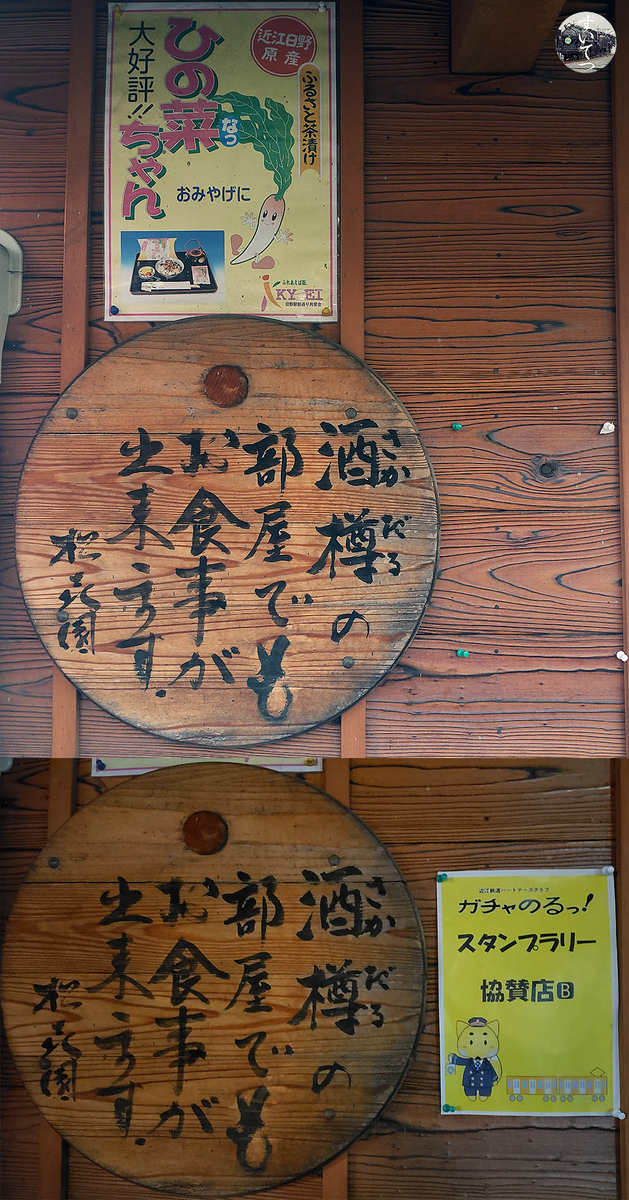 すいてつ
近江日野
原産
ふるさと茶漬け
ひの菜
なっ
ちゃん
大好評!!
おみやげに
ふれあえば街。
KYOEI
日野駅前通り共栄会
酒樽の
さかだる
部屋でも
お食事が
出来ます。
松喜園
酒樽の
さかだる
部屋でも
お食事が
出来ます。
松喜園
近江鉄道パートナーズクラブ
ガチャのるっ!
スタンプラリー
協賛店B